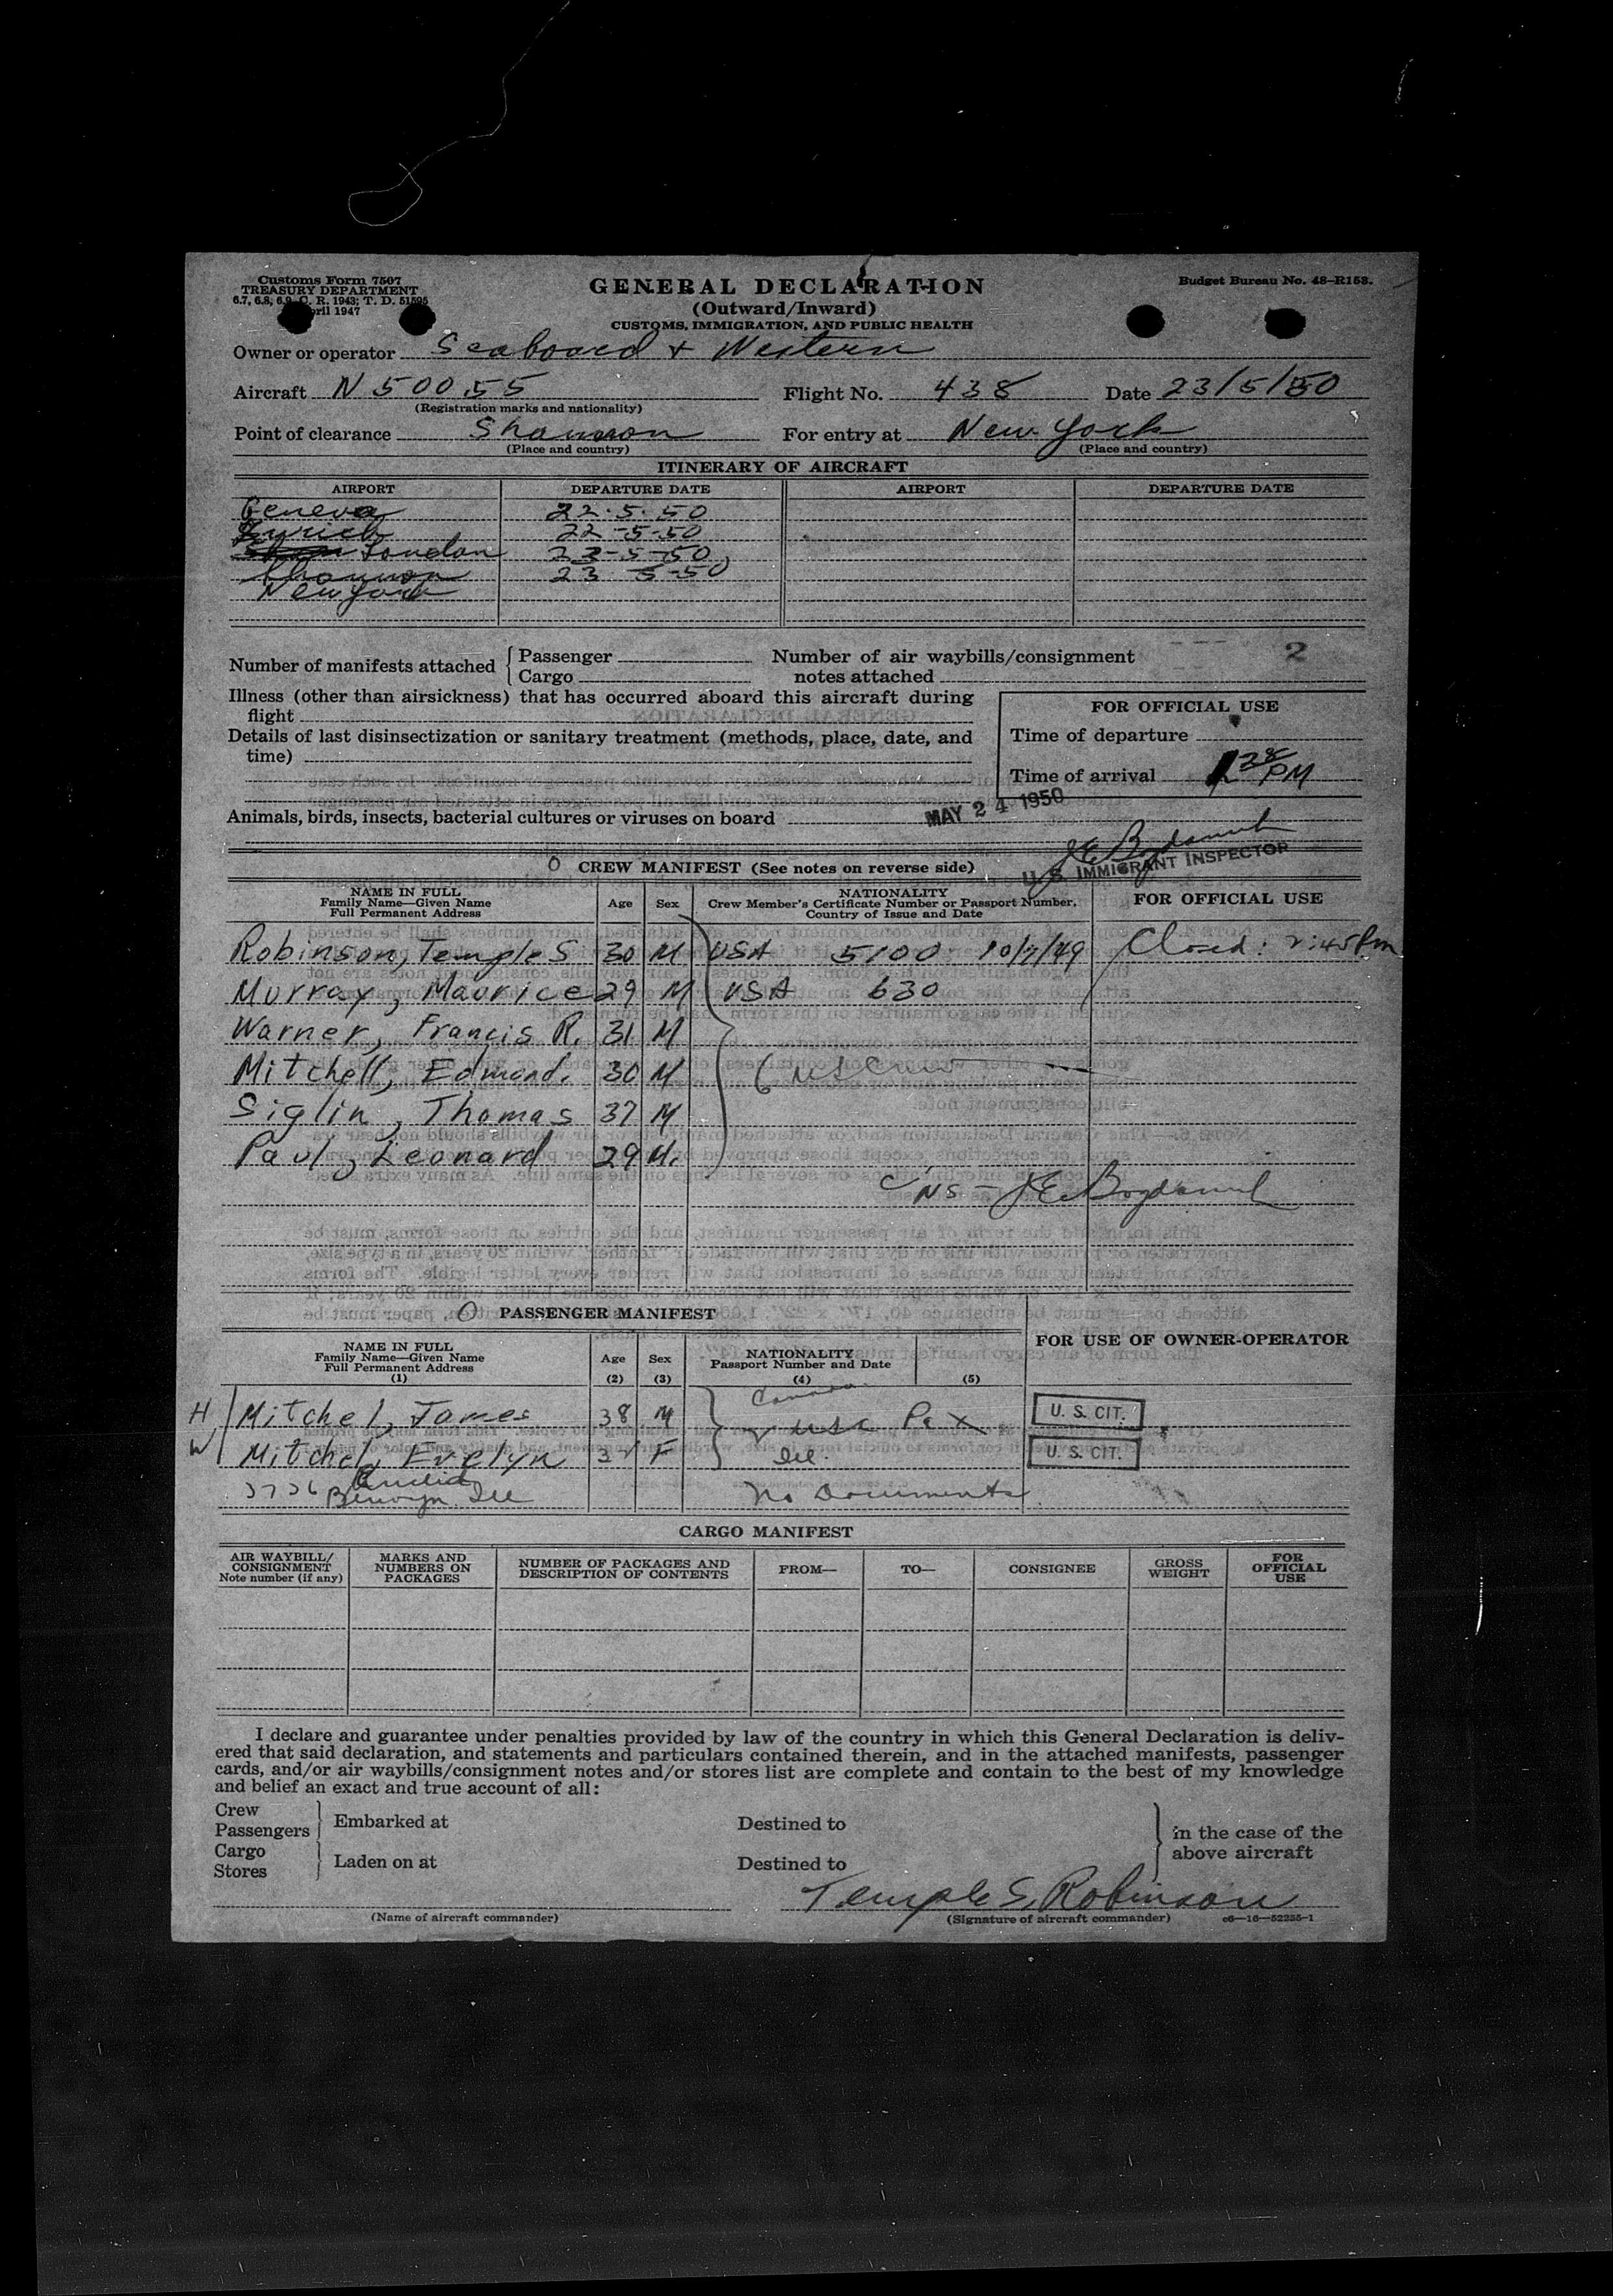 Customs Form 7507
TREASURY DEPARTMENT
6.7, 6.8, 6.9, C. R. 1943; T. D. 51595
ril 1947
GENERAL DECLARATION
(Outward/Inward)
CUSTOMS, IMMIGRATION, AND PUBLIC HEALTH
Budget Bureau No. 48–R153.
Owner or operator Seaboard + Western
Aircraft N 50055 Flight No. 438 Date 23/5/50
(Registration marks and nationality)
Point of clearance Shannon For entry at New York
(Place and country) (Place and country)
ITINERARY OF AIRCRAFT
AIRPORT DEPARTURE DATE AIRPORT DEPARTURE DATE
Geneva 22.5.50
Zurich 22-5-50
London 23-5-50
Shannon 23 5-50
New York
Number of manifests attached Passenger Cargo
Number of air waybills/consignment notes attached 2
Illness (other than airsickness) that has occurred aboard this aircraft during
flight
Details of last disinsectization or sanitary treatment (methods, place, date, and
time)
FOR OFFICIAL USE
Time of departure
Time of arrival 1 38 PM
MAY 24 1950
Animals, birds, insects, bacterial cultures or viruses on board
U. S. IMMIGRANT INSPECTOR
0 CREW MANIFEST (See notes on reverse side)
NAME IN FULL
Family Name—Given Name
Full Permanent Address
Age
Sex
NATIONALITY
Crew Member's Certificate Number or Passport Number,
Country of Issue and Date
FOR OFFICIAL USE
Robinson, Temple S 30 M USA 5100 10/7/49 Closed: 2:45 Pm
Murray, Maurice 29 M USA 630
Warner, Francis R. 31 M
Mitchell, Edmond. 30 M 6 USC Crew
Siglin, Thomas 37 M
Paul, Leonard 29 M.
0 PASSENGER MANIFEST
NAME IN FULL
Family Name—Given Name
Full Permanent Address
(1)
Age
(2)
Sex
(3)
NATIONALITY
Passport Number and Date
(4) (5)
FOR USE OF OWNER-OPERATOR
H Mitchel, James 38 M USC Pax U. S. CIT.
W Mitchel, Evelyn F U. S. CIT.
3736
Berwyn Ill No Documents
CARGO MANIFEST
AIR WAYBILL/
CONSIGNMENT
Note number (if any)
MARKS AND
NUMBERS ON
PACKAGES
NUMBER OF PACKAGES AND
DESCRIPTION OF CONTENTS
FROM—
TO—
CONSIGNEE
GROSS
WEIGHT
FOR
OFFICIAL
USE
I declare and guarantee under penalties provided by law of the country in which this General Declaration is deliv-
ered that said declaration, and statements and particulars contained therein, and in the attached manifests, passenger
cards, and/or air waybills/consignment notes and/or stores list are complete and contain to the best of my knowledge
and belief an exact and true account of all:
Crew
Passengers Embarked at Destined to
Cargo
Stores Laden on at Destined to
in the case of the
above aircraft
Temple S. Robinson
(Name of aircraft commander) (Signature of aircraft commander) c6—16—52255-1